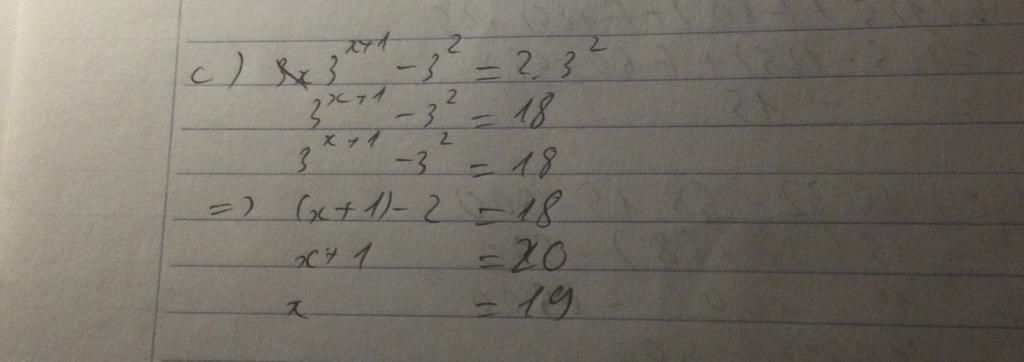 c) 3^{x+1} - 3^2 = 2. 3^2
3^{x+1} - 3^2 = 18
3^{x+1} - 3^2 = 18
=> (x+1) - 2 = 18
x+1 = 20
x = 19